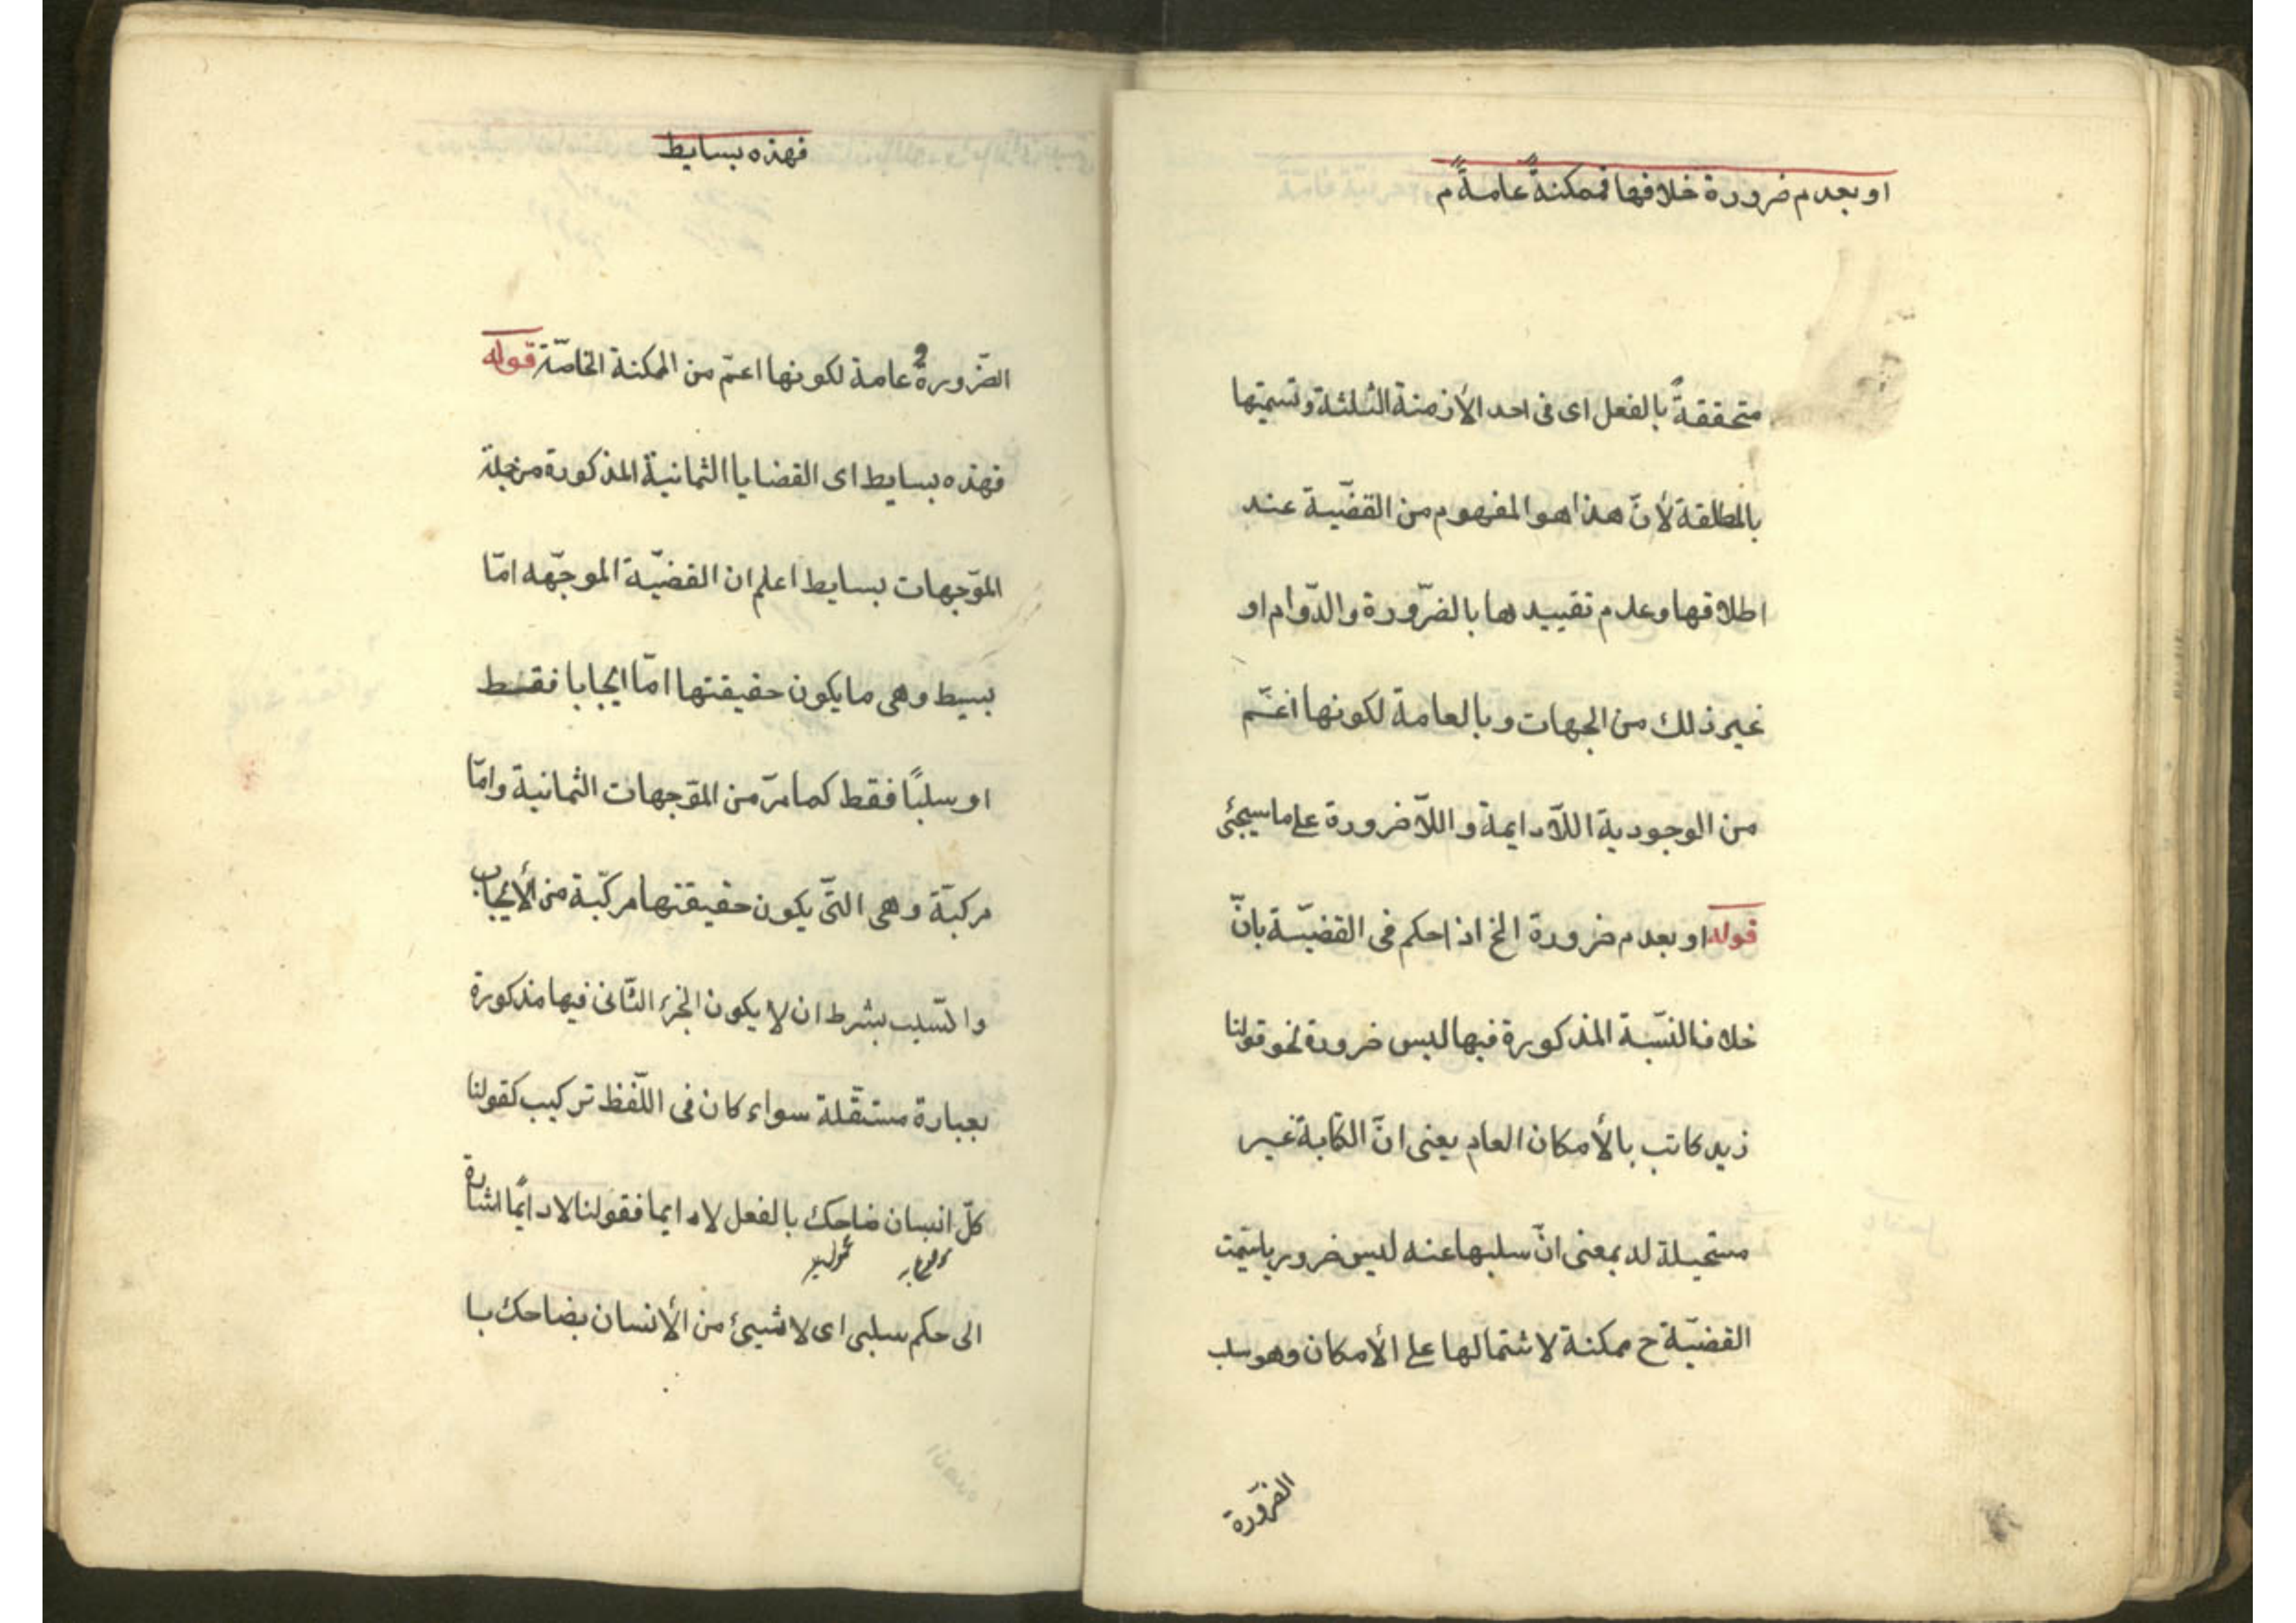 او بعدم ضرورة خلافها فممكنةً عامةً م
متحققةً بالفعل اى فى احد الأزمنة الثلثة وتسميتها
بالمطلقة لأنّ هذا هو المفهوم من القضّية عند
اطلاقها وعدم تقييدها بالضّرورة والدّوام او
غير ذلك من الجهات وبالعامة لكونها اعمّ
من الوجودية اللّادايمة واللّاضرورة على ما سيجئ
قوله او بعدم ضرورة الخ اذا حكم فى القضيّة بانّ
خلاف النّسبة المذكورة فيها ليس ضرورة نحو قولنا
زيد كاتب بالأمكان العام يعنى انّ الكتابة غير
مستحيلة له بمعنى انّ سلبها عنه ليس ضروريا سمّيت
القضيّة ح ممكنة لاشتمالها على الأمكان وهو سلب
الضّرورة
فهذه بسايط
الضّرورة عامة لكونها اعمّ من الممكنة الخاصّة قوله
فهذه بسايط اى القضايا الثمانية المذكورة من جملة
الموّجهات بسايط اعلم ان القضيّة الموجّهه امّا
بسيط وهى ما يكون حقيقتها امّا ايجابا فقط
او سلبًا فقط كما مرّ من الموّجهات الثمانية وامّا
مركبّة وهى التّى يكون حقيقتها مركبّة من الأيجاب
والسّلب بشرط ان لا يكون الجزء الثّانى فيها مذكورة
بعبارة مستقّلة سواء كان فى اللّفظ تركيب كقولنا
كلّ انسان ضاحك بالفعل لا دايما فقولنا لا دايمًا اشارة
الى حكم سلبى اى لا شيئ من الأنسان بضاحك با